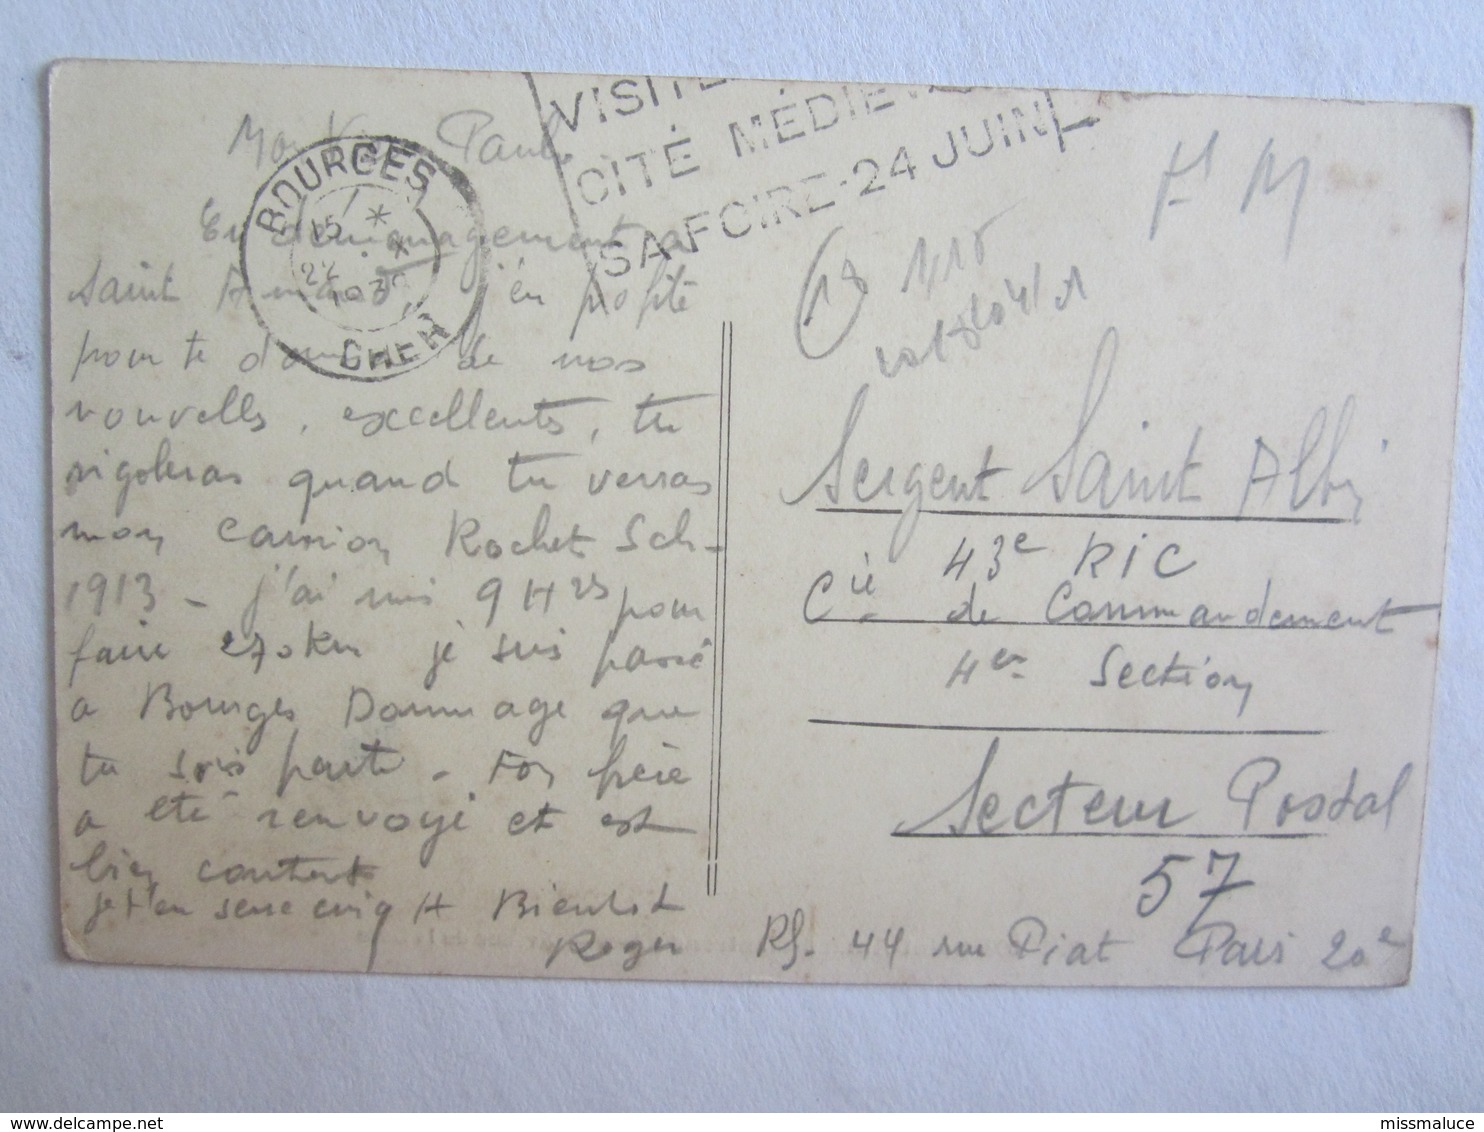 Mon Vieux Paul
BOURGES
15
22
CHER
VISITE
CITÉ MÉDIEVA
SA FOIRE-24 JUIN
F M
En déménagement a
Saint Amand, j'en profite
pour te donner de nos
nouvelles, excellentes, tu
rigoleras quand tu verras
mon camion Rochet Sch-
1913 - j'ai mis 9 Hres pour
faire 270 km je suis passé
a Bourges Dommage que
tu sois parti - Ton frère
a été renvoyé et est
bien content
je t'en serre cinq H Bientot
Roger
Sergent Saint Albin
43e RIC
Cie de Commandement
4e Section
Secteur Postal
57
44 rue Piat Paris 20e
missmaluce